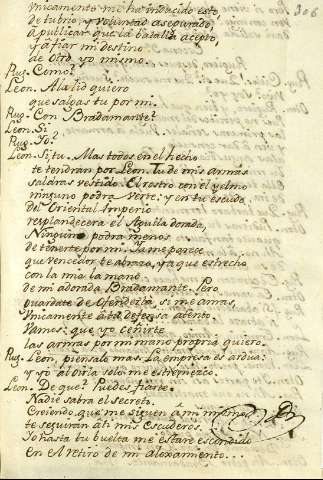 306
Vnicamente me ha inducido esto,
de tu brio, y voluntad asegurado
a publicar que la batalla acepto,
y a fiar mi destino
de otro yo mismo.
Rug. Como?
Leon. A la lid quiero
que salgas tu por mi.
Rug. Con Bradamante?
Leon. Si
Rug. Yo?
Leon. Si, tu. Mas todos en el hecho
te tendran por Leon. Tu de mis armas
saldras vestido. El rostro con el yelmo
ninguno podra verte: y en tu escudo
del Oriental Imperio
resplandecera el Aguila dorada,
Ninguno podra menos
de tenerte por mi. Ya me parece
que vencedor te abrazo, ya que estrecho
con la mia la mano
de mi adorada Bradamante. Pero
guardate de ofenderla, si me amas,
Vnicamente a tu defensa atento.
Vamos: que yo ceñirte
las armas por mi mano propria quiero.
Rug. Leon, piensalo mas. La empresa es ardua:
y yo al oirla solo me estremezco.
Leon. De que? Puedes fiarte.
Nadie sabra el secreto.
Creiendo que me siguen à mi mismo,
te seguiran à ti mis Escuderos.
Yo hasta tu buelta me estare escondido
en el retiro de mi aloxamiento...